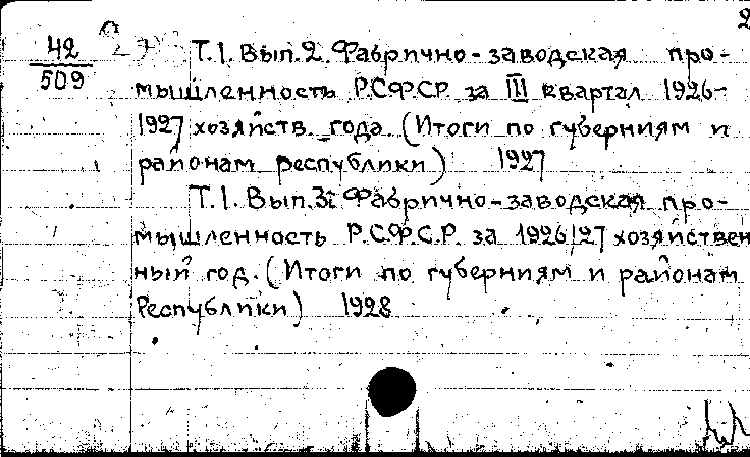 2
42
509
Т.1. Вып.2. Фабрично-заводская про-
мышленность Р.С.Ф.С.Р. за III квартал 1926-
1927 хозяйств. года. (Итоги по губерниям и
районам республики) 1927
Т.1. Вып.3. Фабрично-заводская про-
мышленность Р.С.Ф.С.Р. за 1926/27 хозяйствен
ный год. (Итоги по губерниям и районам
Республики) 1928